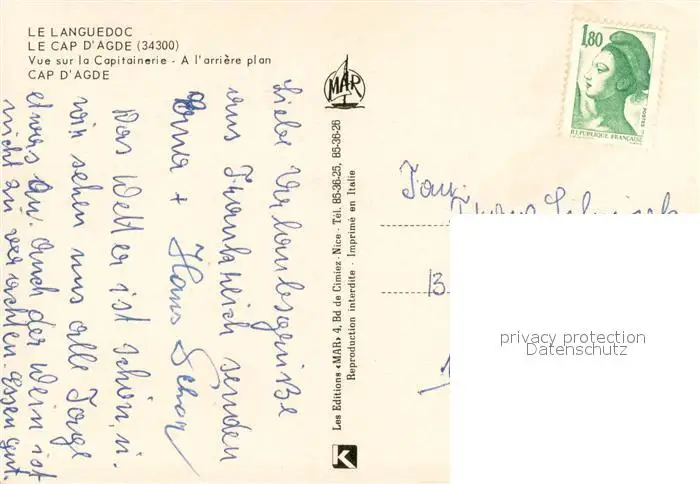 LE LANGUEDOC
LE CAP D'AGDE (34300)
Vue sur la Capitainerie - A l'arrière plan
CAP D'AGDE
Liebe Urlaubsgrüße
aus Frankreich senden
Erna + Hans
Das Wetter ist schön,
wir sehen uns alle Tage
etwas an. Auch der Wein ist
nicht zu verachten. Essen gut.
MAR
Les Editions «MAR» 4, Bd de Cimiez - Nice - Tél. 85-36-25, 85-36-26
Reproduction interdite - Imprimé en Italie
K
1,80
POSTES
REPUBLIQUE FRANÇAISE
13
privacy protection
Datenschutz